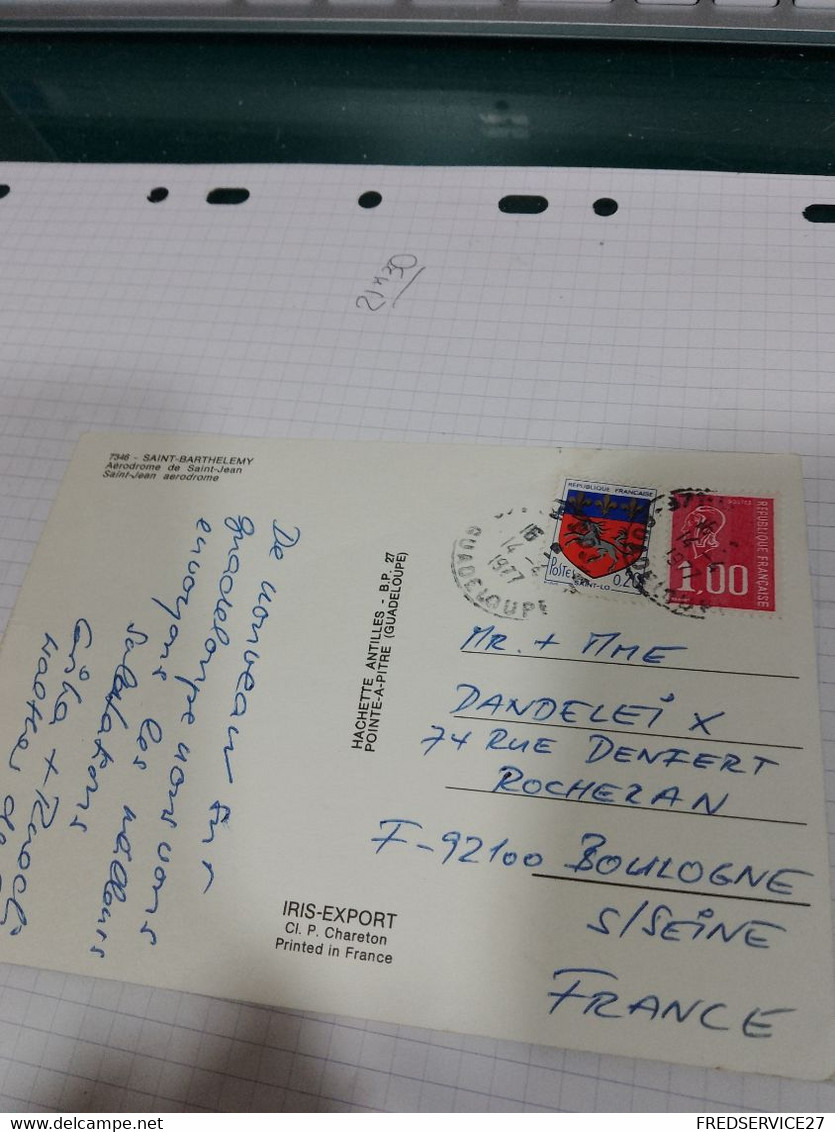 21 x 30
7346 - SAINT-BARTHELEMY
Aérodrome de Saint-Jean
Saint-Jean aerodrome
De nouveau sur
Guadeloupe nous vous
envoyons les meilleurs
Salutations
HACHETTE ANTILLES - B.P. 27
POINTE-A-PITRE (GUADELOUPE)
IRIS-EXPORT
Cl. P. Chareton
Printed in France
REPUBLIQUE FRANÇAISE
POSTES
SAINT-LO
0,20
REPUBLIQUE FRANÇAISE
1,00
16
14-4
1977
GUADELOUPE
16
1977
GUADELOUPE
MR. + MME
DANDELEIX
74 RUE DENFERT
ROCHERAN
F-92100 BOULOGNE
S/SEINE
FRANCE
FREDSERVICE27